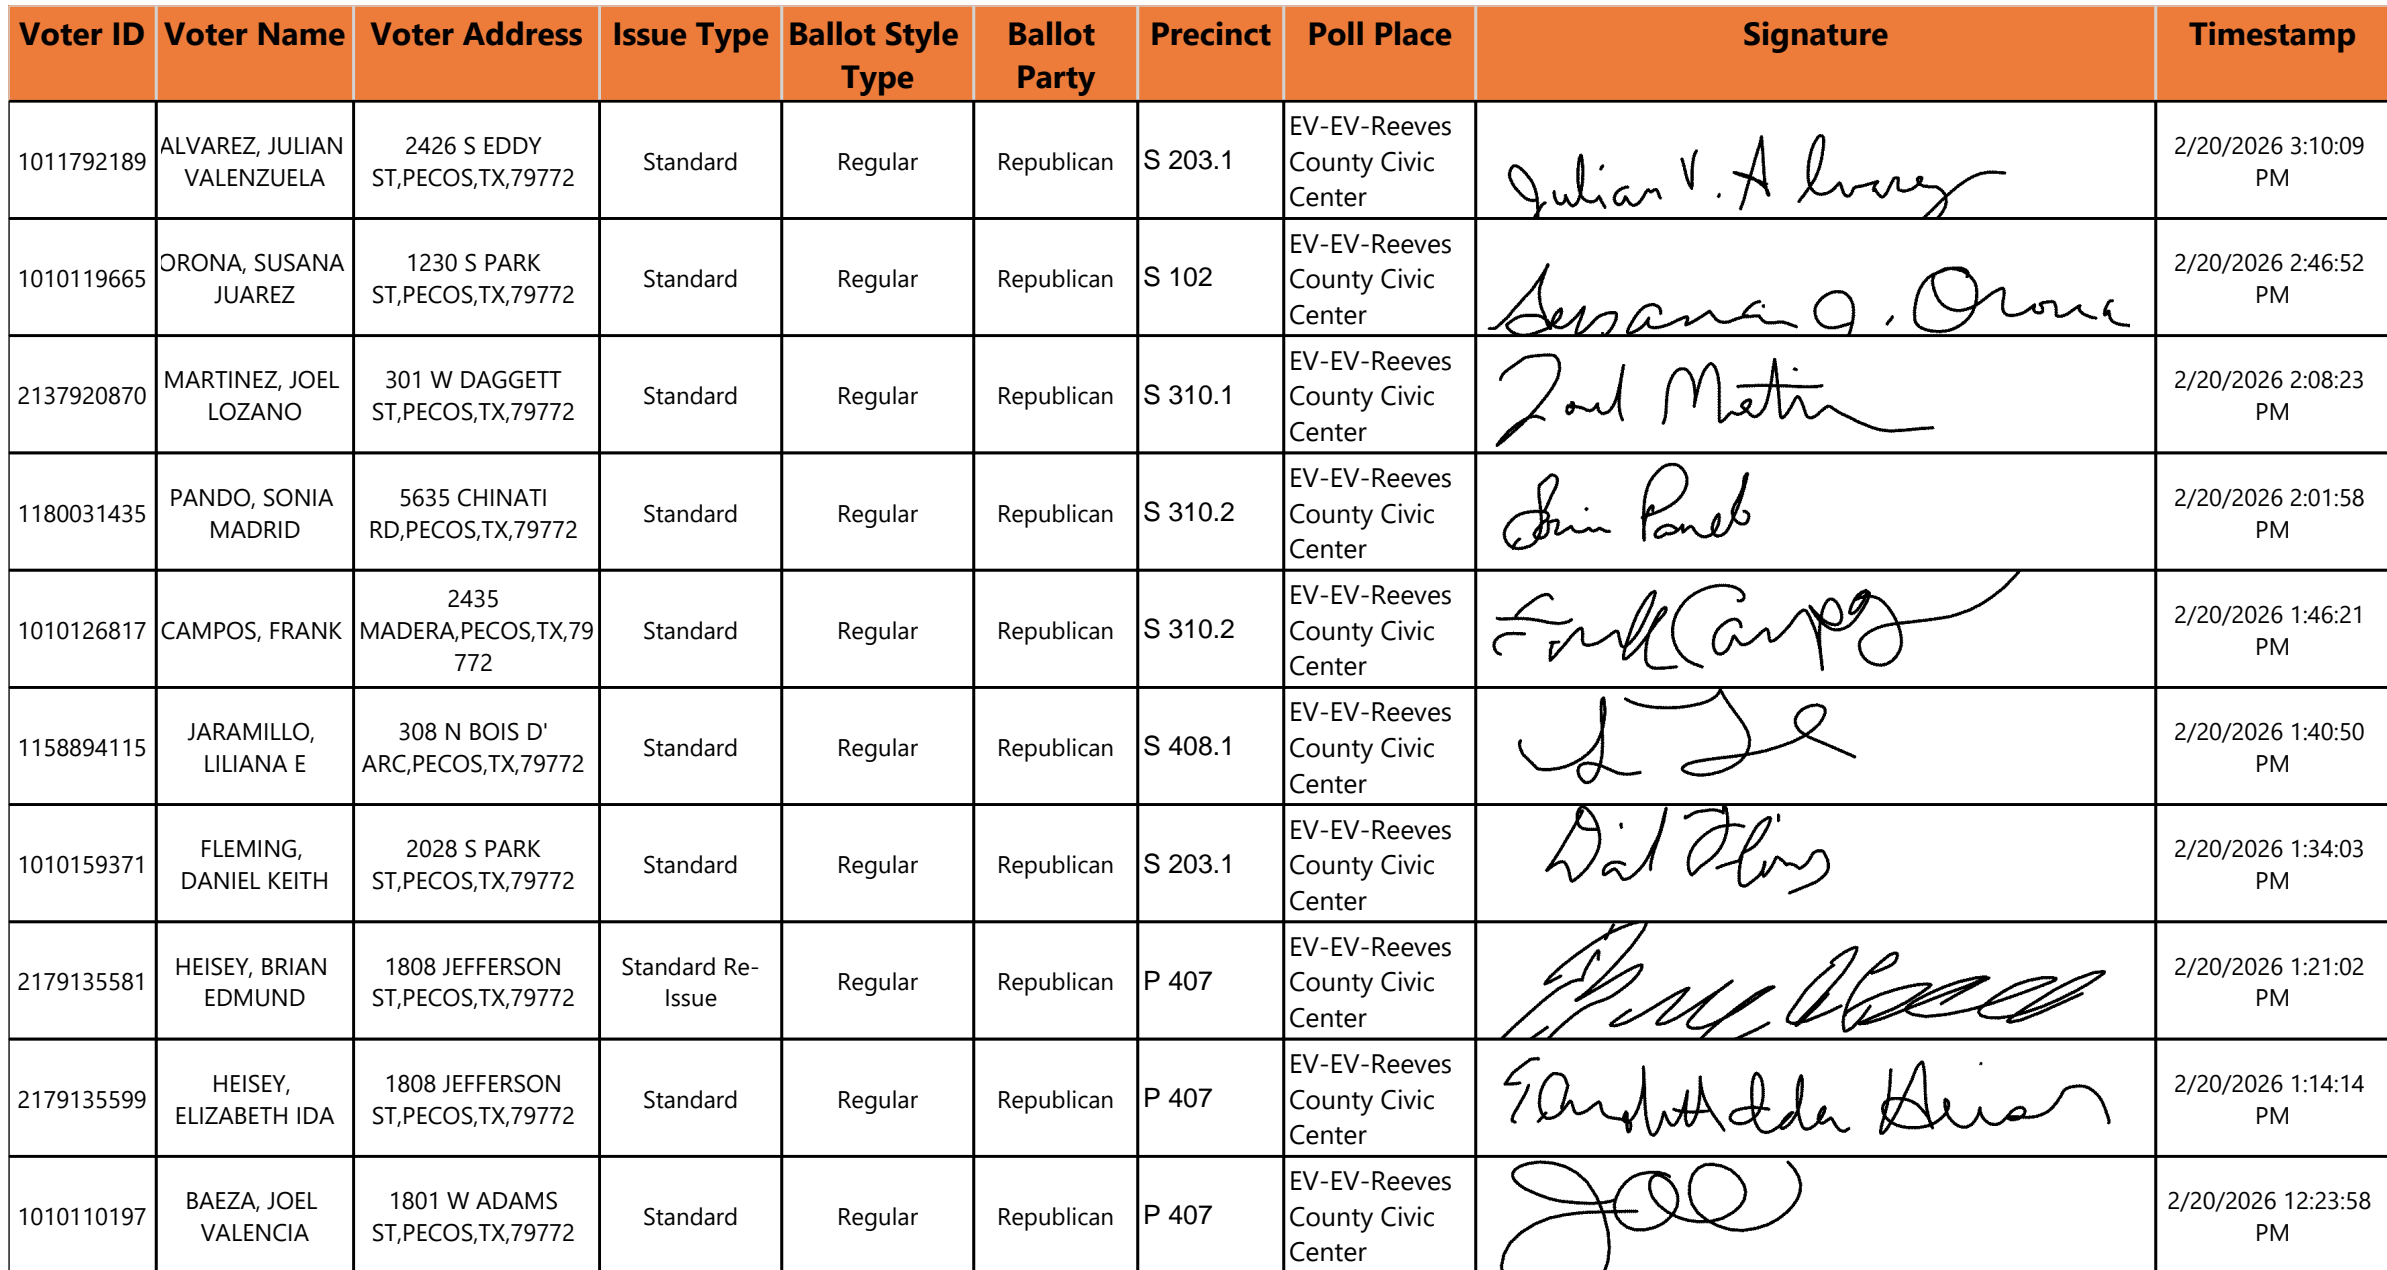 Voter ID Voter Name Voter Address Issue Type Ballot Style Type Ballot Party Precinct Poll Place Signature Timestamp
1011792189 ALVAREZ, JULIAN VALENZUELA 2426 S EDDY ST,PECOS,TX,79772 Standard Regular Republican S 203.1 EV-EV-Reeves County Civic Center Julian V. Alvarez 2/20/2026 3:10:09 PM
1010119665 ORONA, SUSANA JUAREZ 1230 S PARK ST,PECOS,TX,79772 Standard Regular Republican S 102 EV-EV-Reeves County Civic Center Susana J. Orona 2/20/2026 2:46:52 PM
2137920870 MARTINEZ, JOEL LOZANO 301 W DAGGETT ST,PECOS,TX,79772 Standard Regular Republican S 310.1 EV-EV-Reeves County Civic Center 2/20/2026 2:08:23 PM
1180031435 PANDO, SONIA MADRID 5635 CHINATI RD,PECOS,TX,79772 Standard Regular Republican S 310.2 EV-EV-Reeves County Civic Center 2/20/2026 2:01:58 PM
1010126817 CAMPOS, FRANK 2435 MADERA,PECOS,TX,79772 Standard Regular Republican S 310.2 EV-EV-Reeves County Civic Center Frank Campos 2/20/2026 1:46:21 PM
1158894115 JARAMILLO, LILIANA E 308 N BOIS D' ARC,PECOS,TX,79772 Standard Regular Republican S 408.1 EV-EV-Reeves County Civic Center 2/20/2026 1:40:50 PM
1010159371 FLEMING, DANIEL KEITH 2028 S PARK ST,PECOS,TX,79772 Standard Regular Republican S 203.1 EV-EV-Reeves County Civic Center 2/20/2026 1:34:03 PM
2179135581 HEISEY, BRIAN EDMUND 1808 JEFFERSON ST,PECOS,TX,79772 Standard Re-Issue Regular Republican P 407 EV-EV-Reeves County Civic Center 2/20/2026 1:21:02 PM
2179135599 HEISEY, ELIZABETH IDA 1808 JEFFERSON ST,PECOS,TX,79772 Standard Regular Republican P 407 EV-EV-Reeves County Civic Center 2/20/2026 1:14:14 PM
1010110197 BAEZA, JOEL VALENCIA 1801 W ADAMS ST,PECOS,TX,79772 Standard Regular Republican P 407 EV-EV-Reeves County Civic Center 2/20/2026 12:23:58 PM